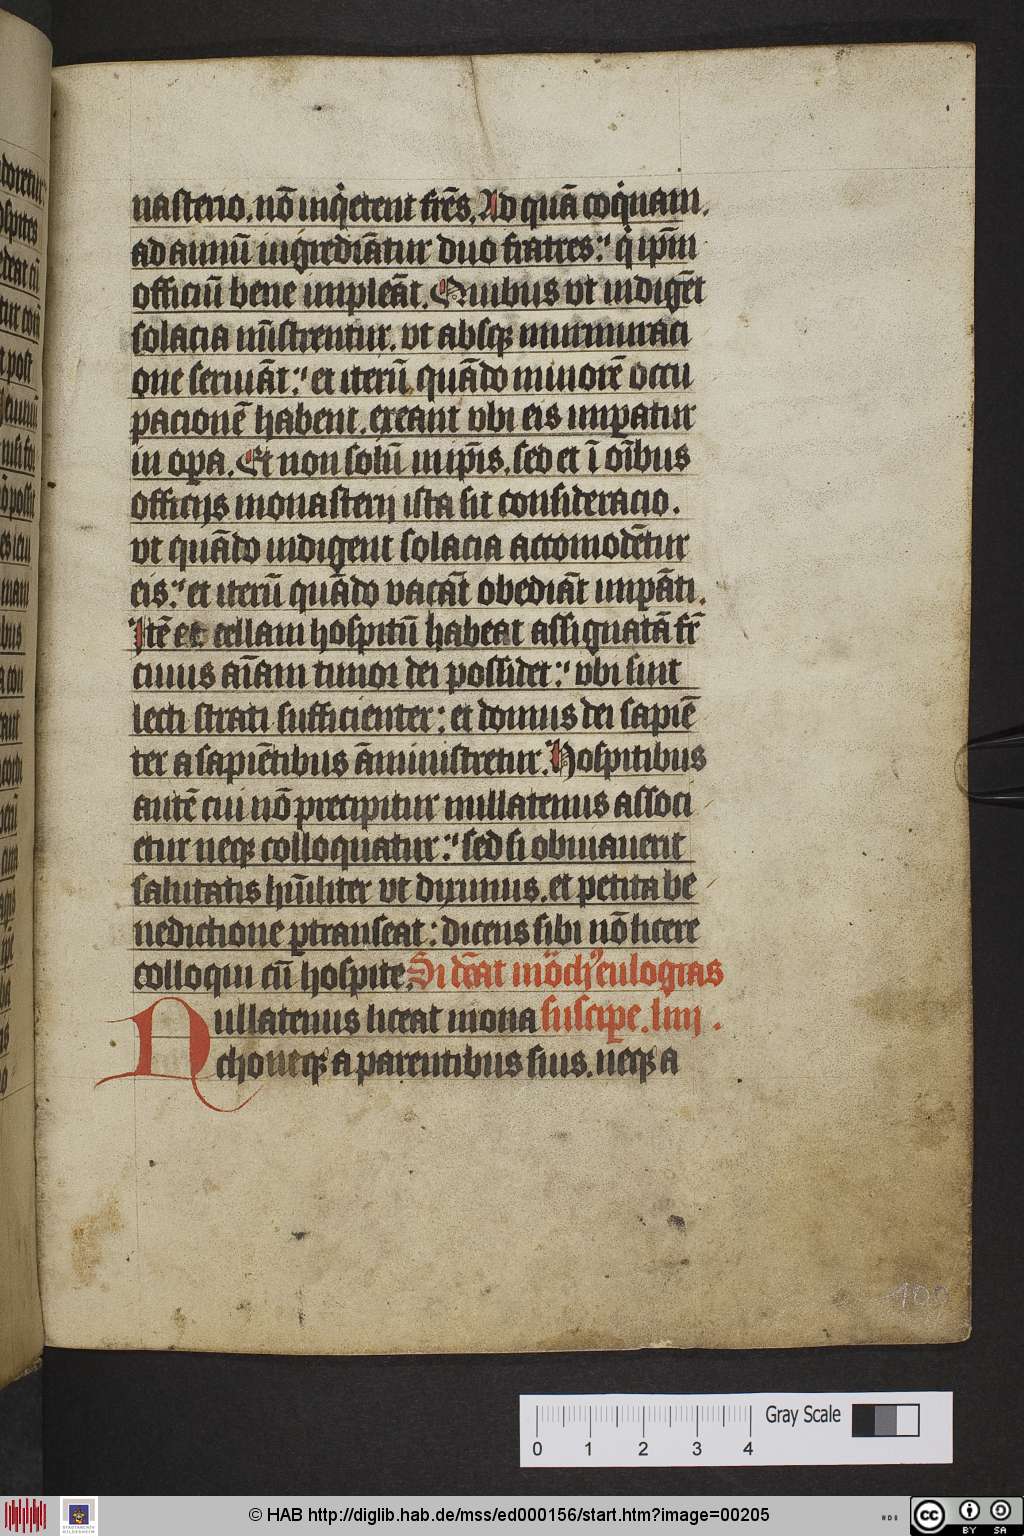 nasterio. nō inq̇etent fr̄es. Ad quā coq̇nam.
ad annū ingrediātur duo fratres: q̇ ip̄m
officiū bene impleāt. Quibus vt indigēt
solacia mīstrentur. vt absq̄ murmuraci
one seruāt: et iterū quādo minorē occu
pacionē habent. exeant vbi eis imꝑatur
in oꝑa. Et non solū in ip̄is. sed et ī oībus
officijs monasterij ista sit consideracio.
vt quādo indigent solacia accomodētur
eis: et iterū quādo vacāt obediāt imꝑāti.
Itē et cellam hospitū habeat assignatā fr̄
cuius aīam timor dei possidet: vbi sint
lecti strati sufficienter: et domus dei sapiē
ter a sapiētibus āministretur. Hospitibus
autē cui nō precipitur nullatenus associ
etur neqꝫ colloquatur: sed si obuiauerit
salutatis hūiliter vt diximus. et petita be
nedictione ꝑtranseat: dicens sibi nō licere
colloqui cū hospite. Si dēat mōchꝰ eulogias
Nullatenus liceat mona suscipe. liiij.
cho neqꝫ a parentibus suis. neqꝫ a
109
0 1 2 3 4
Gray Scale
© HAB http://diglib.hab.de/mss/ed000156/start.htm?image=00205
cc BY SA